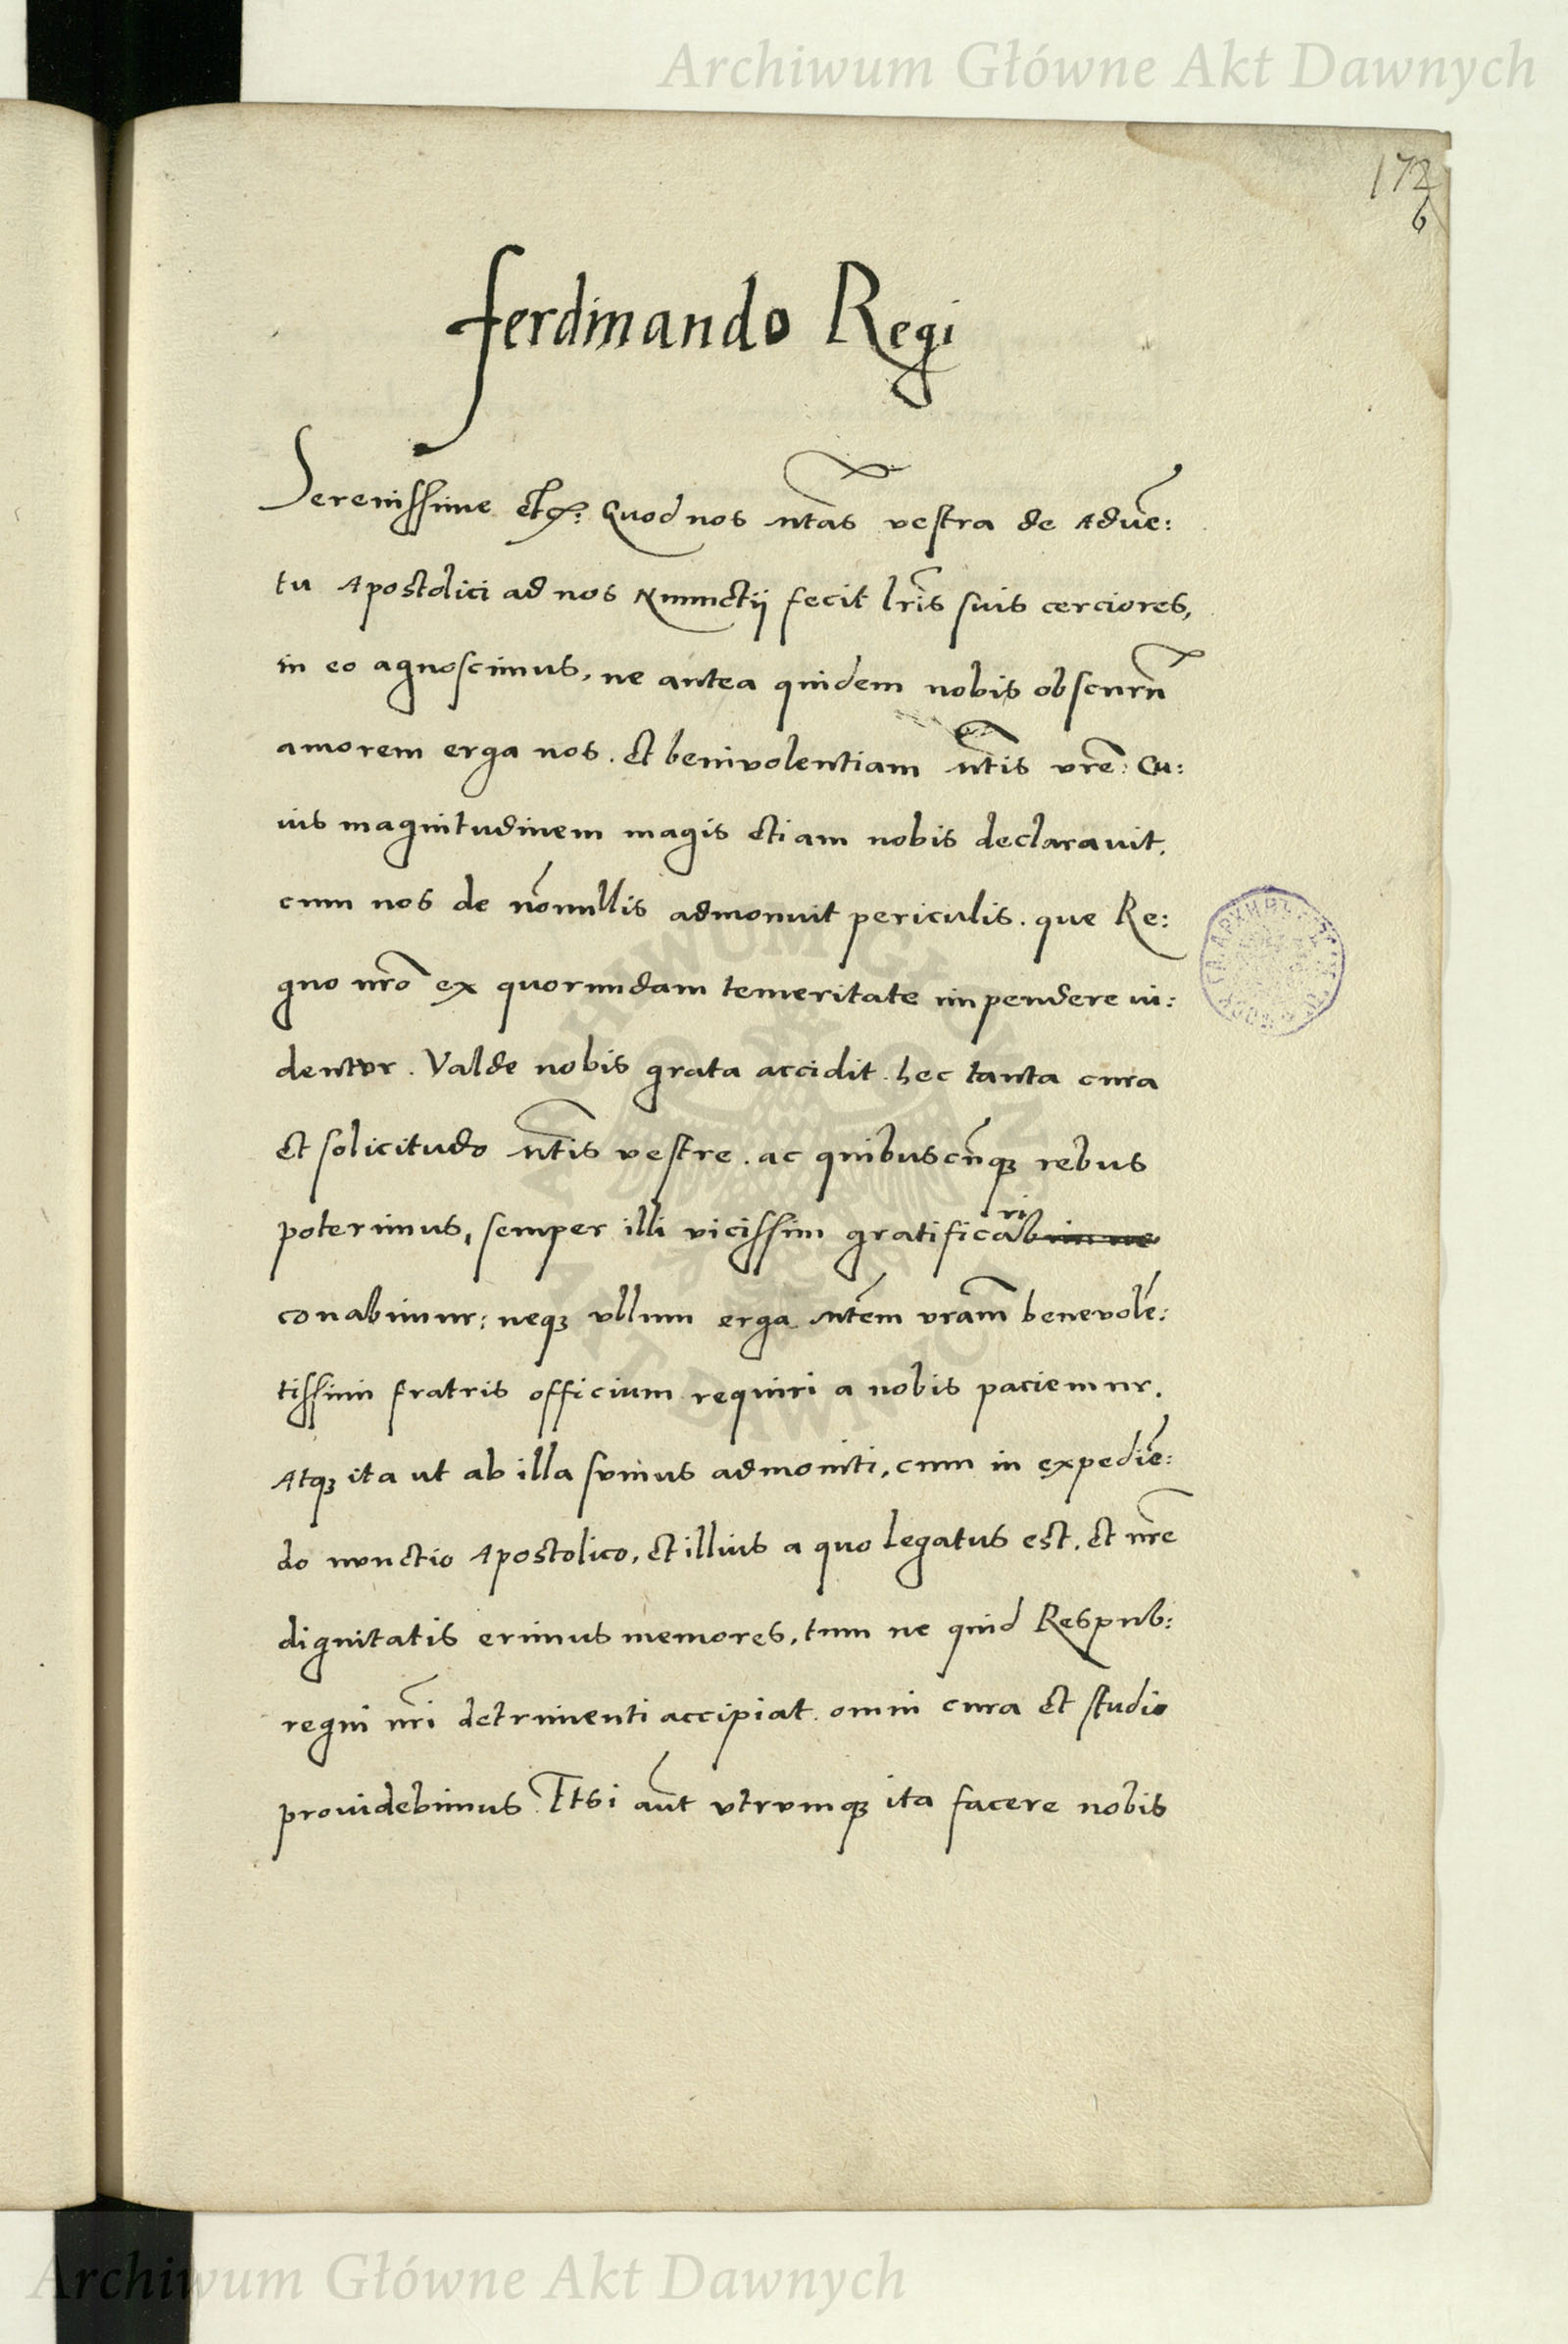 Archiwum Główne Akt Dawnych
172
6
Ferdinando Regi
Serenissime etc: Quod nos Mtas vestra de Aduē:
tu Apostolici ad nos Nunnctij fecit lris suis cerciores,
in eo agnoscimus, ne antea quidem nobis obscurū
amorem erga nos. et benivolentiam Mtis vre: Cu:
ius magnitudinem magis etiam nobis declarauit.
cum nos de nōnullis admonuit periculis. que Re:
gno nro ex quorundam temeritate impendere ui:
dentvr. Valde nobis grata accidit. hec tanta cura
et solicitudo Mtis vestre. ac quibuscūq rebus
poterimus, semper illi vicissim gratificari
conabimur: neq vllum erga Mtem vram benevolē:
tissimi fratris officium requiri a nobis paciemur.
Atq ita ut ab illa svmus admoniti, cum in expediē:
do nvnctio Apostolico, et illius a quo legatus est, et nre
dignitatis erimus memores, tum ne quid Respub:
regni nri detrimenti accipiat. omni cura et studio
prouidebimus. Etsi aūt vtrvmq ita facere nobis
ARCHIWUM GŁÓWNE
AKT DAWNYCH
Archiwum Główne Akt Dawnych